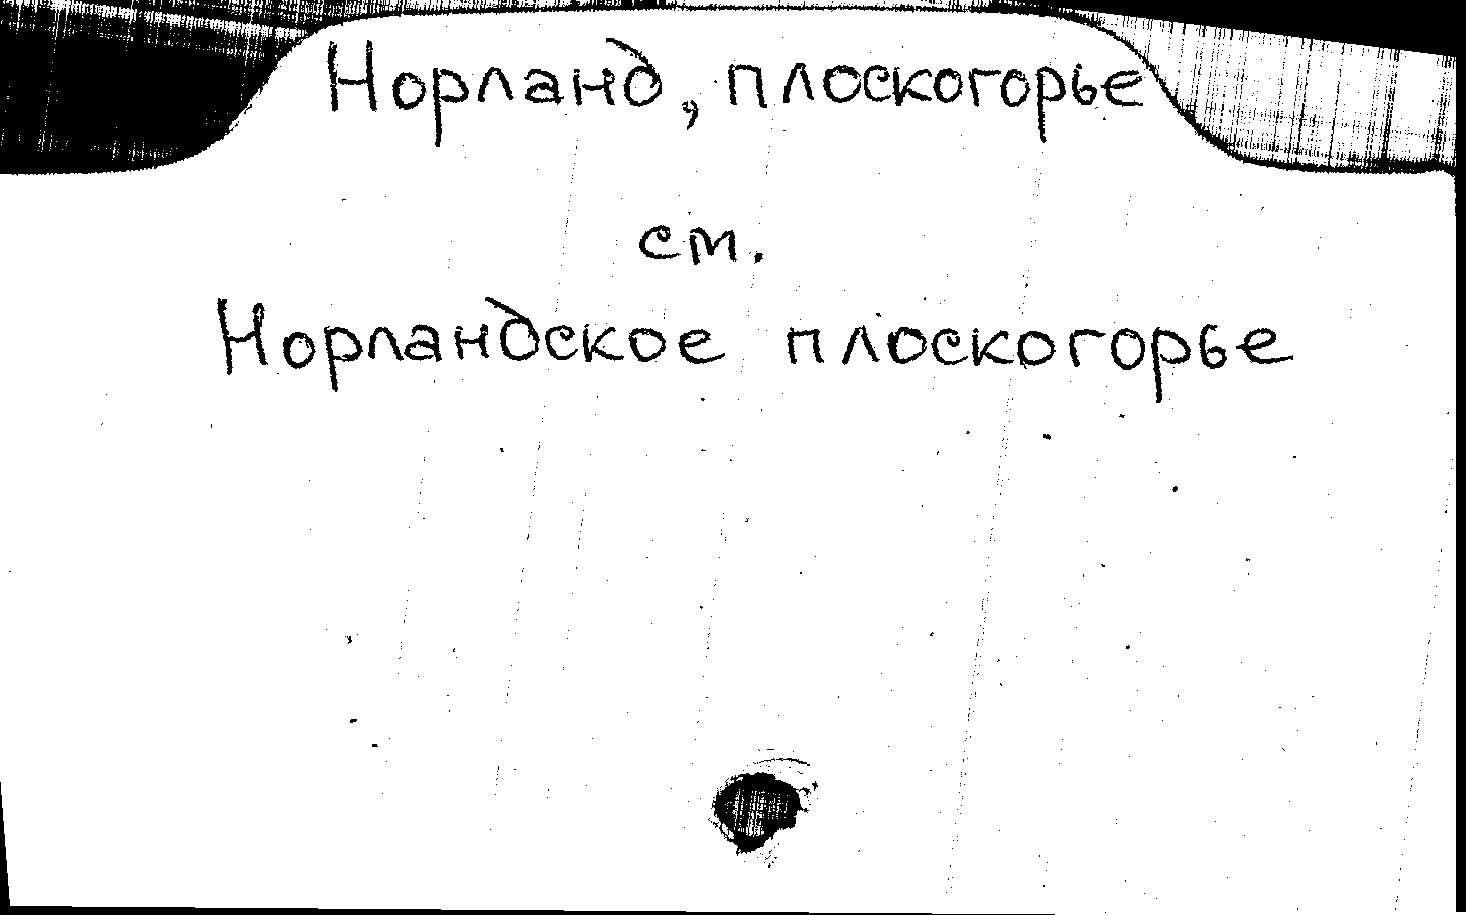 Норланд, плоскогорье
см.
Норландское плоскогорье